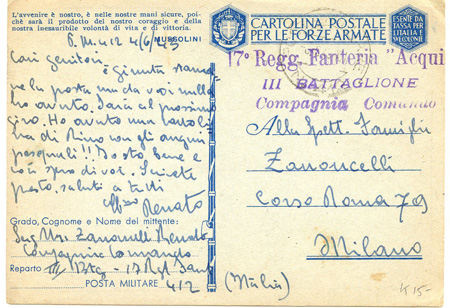 L'avvenire è nostro, è nelle nostre mani sicure, poi-
chè sarà il prodotto del nostro coraggio e della
nostra inesauribile volontà di vita e di vittoria.
MUSSOLINI
P.M. 412 4/6/43
Cari genitori
è giunta
la posta ma da voi nulla
ho avuto. Sarà al prossimo
giro. Ho avuto una
di Nino con gli auguri
pasquali!! Io sto bene e
così spero di voi. Scrivete
presto, saluti a tutti
Renato
Grado, Cognome e Nome del mittente:
Zanoncelli Renato
Compagnia Comando
Reparto III Btg - 17 Rgt Fant
POSTA MILITARE 412
CARTOLINA POSTALE
PER LE FORZE ARMATE
ESENTE DA
TASSA PER
L'ITALIA E
VINCERE
17° Regg. Fanteria "Acqui
III BATTAGLIONE
Compagnia Comando
Alla Spett. Famiglia
Zanoncelli
Corso Roma 79
Milano
(Milano)
K 15-